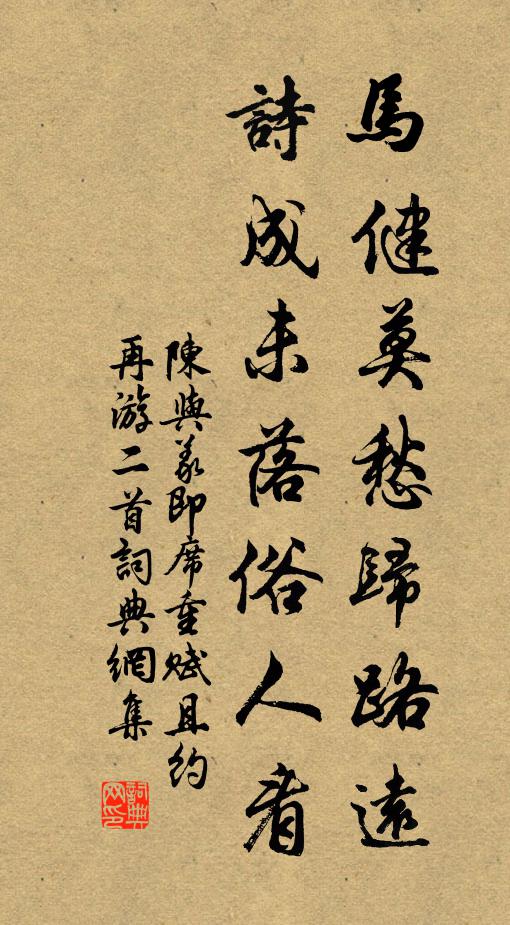 馬健莫愁歸路遠
詩成未落俗人看
陳與義即席重賦且約
再游二首詞典網集
詞典网印